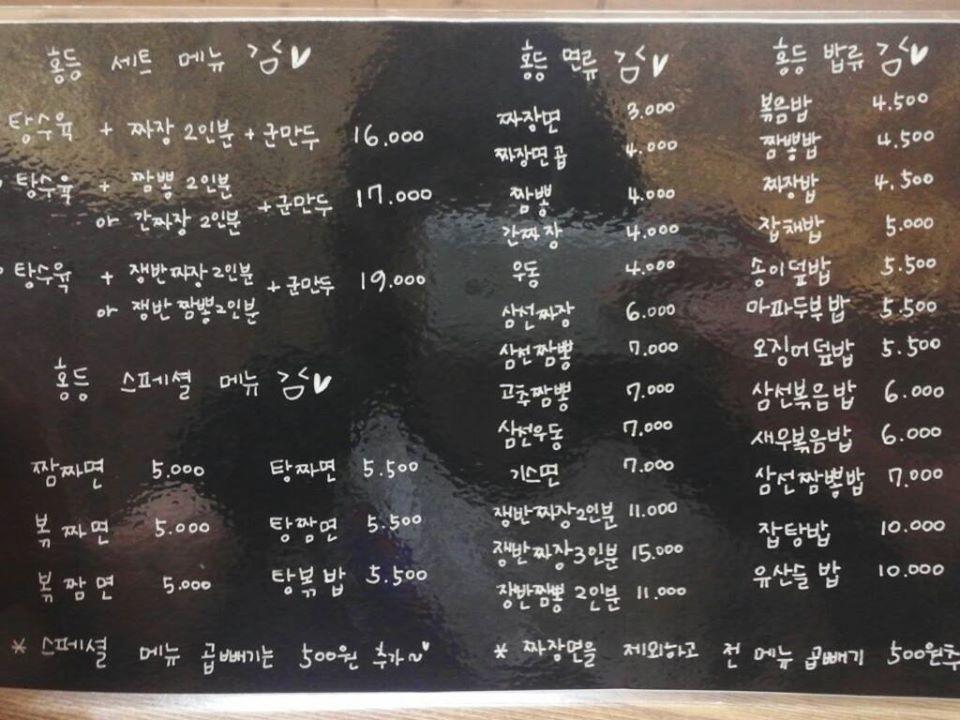 홍등 세트 메뉴
탕수육 + 짜장 2인분 + 군만두 16.000
탕수육 + 짬뽕 2인분
or 간짜장 2인분 + 군만두 17.000
탕수육 + 쟁반짜장 2인분
or 쟁반 짬뽕 2인분 + 군만두 19.000
홍등 스페셜 메뉴
짬짜면 5.000 탕짜면 5.500
볶짜면 5.000 탕짬면 5.500
볶짬면 5.000 탕볶밥 5.500
* 스페셜 메뉴 곱빼기는 500원 추가~
홍등 면류
짜장면 3.000
짜장면곱 4.000
짬뽕 4.000
간짜장 4.000
우동 4.000
삼선짜장 6.000
삼선짬뽕 7.000
고추짬뽕 7.000
삼선우동 7.000
기스면 7.000
쟁반짜장2인분 11.000
쟁반짜장3인분 15.000
쟁반짬뽕 2인분 11.000
홍등 밥류
볶음밥 4.500
짬뽕밥 4.500
짜장밥 4.500
잡채밥 5.000
송이덮밥 5.500
마파두부밥 5.500
오징어덮밥 5.500
삼선볶음밥 6.000
새우볶음밥 6.000
삼선짬뽕밥 7.000
잡탕밥 10.000
유산슬밥 10.000
* 짜장면을 제외하고 전 메뉴 곱빼기 500원추